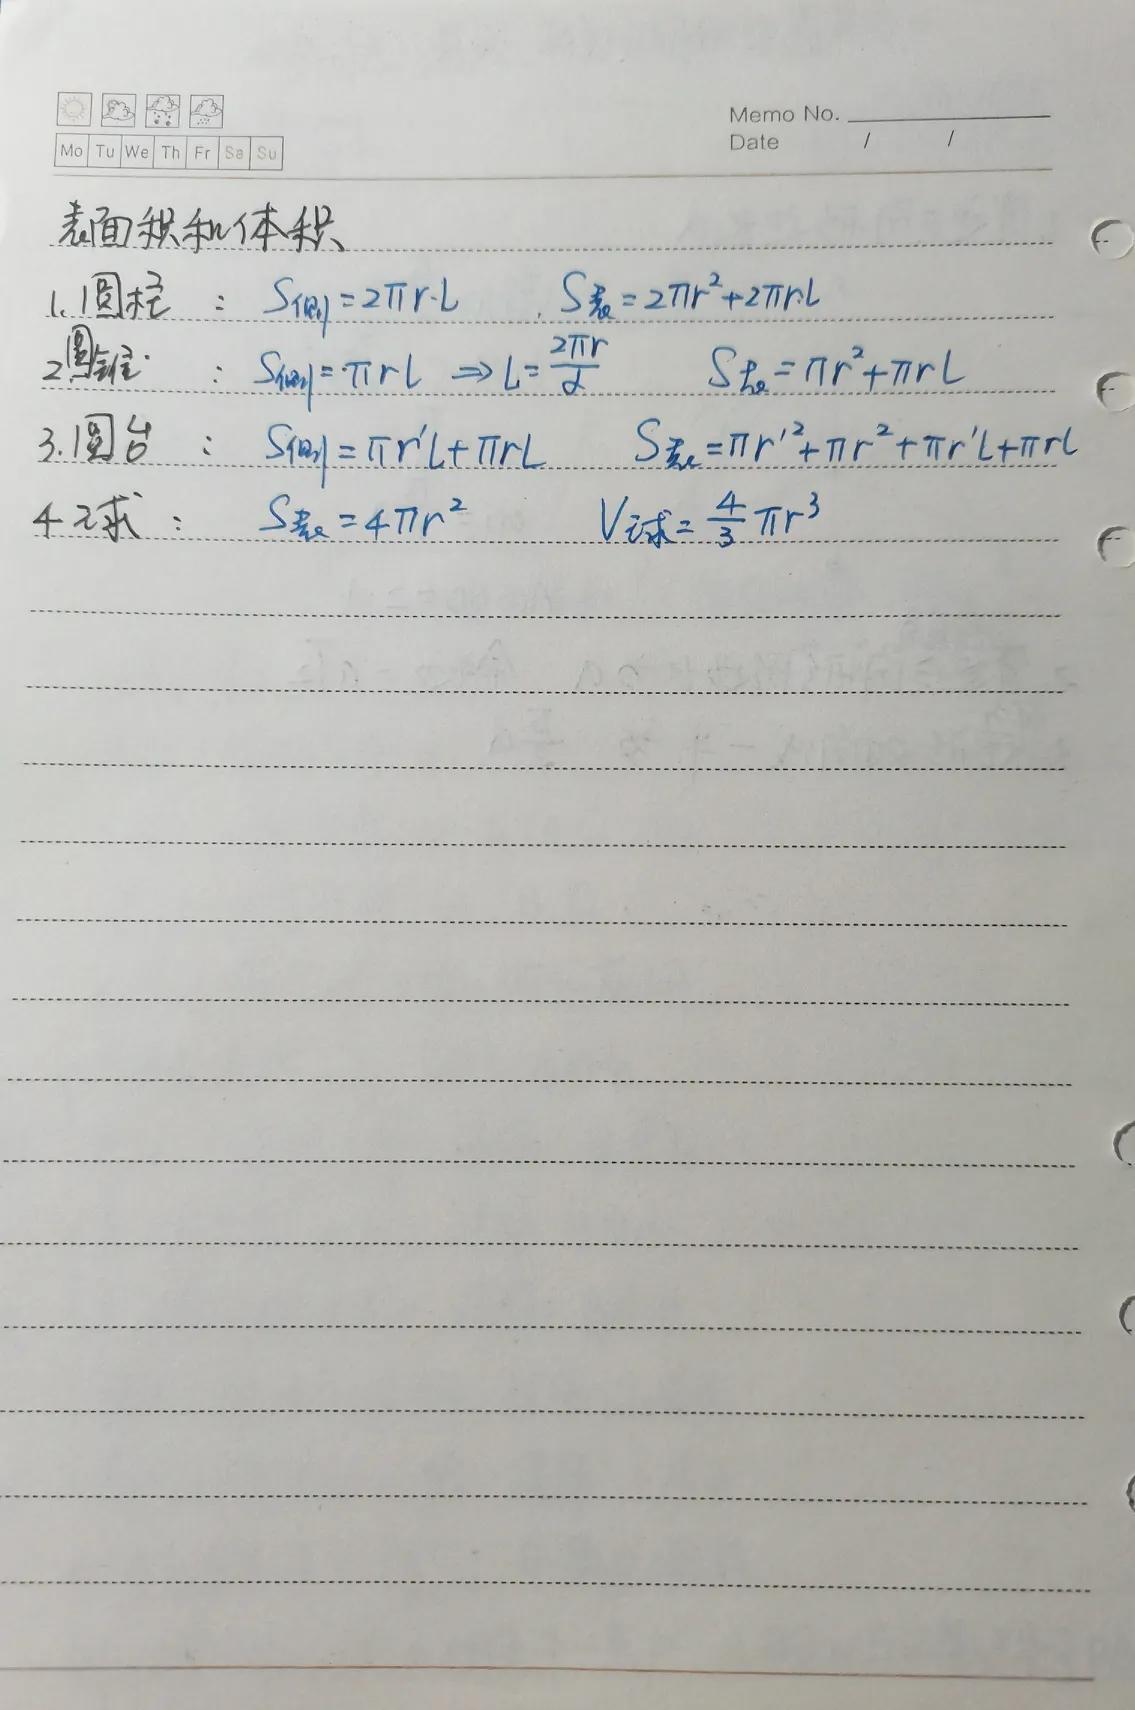 Memo No.
Mo Tu We Th Fr Sa Su
Date / /
表面积和体积
1.圆柱 : S侧=2πr·L S表=2πr²+2πrL
2圆锥 : S侧=πrL ⇒L=2πr/α S表=πr²+πrL
3.圆台 : S侧=πr'L+πrL S表=πr'²+πr²+πr'L+πrL
4球 : S表=4πr² V球=4/3πr³